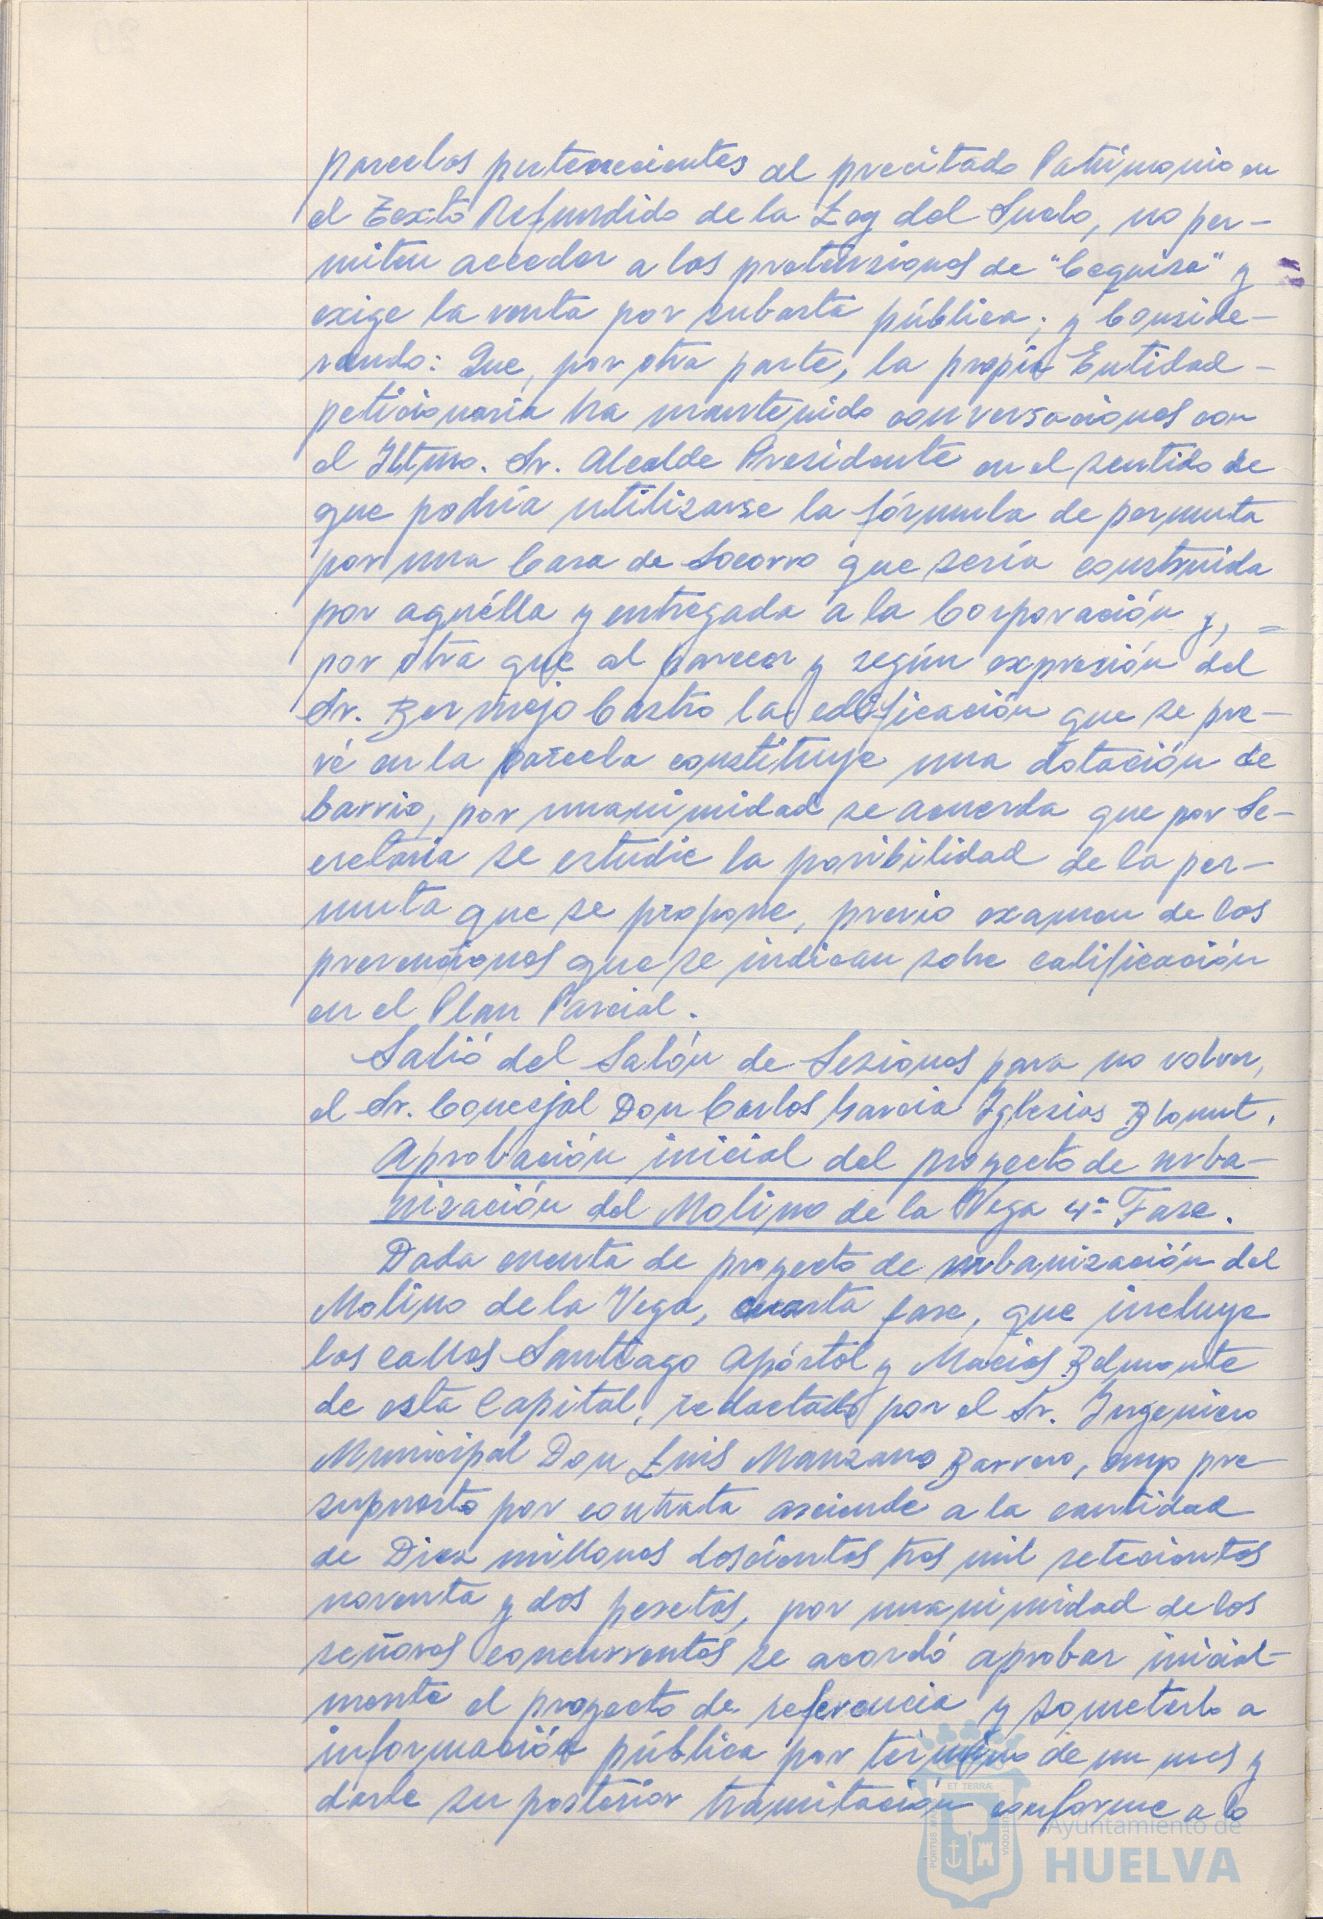 parcelas pertenecientes al precitado Patrimonio en
el Texto Refundido de la Ley del Suelo, no per-
miten acceder a las pretensiones de "Cequisa" y
exige la venta por subasta pública; y Conside-
rando: Que, por otra parte, la propia Entidad -
peticionaria ha mantenido conversaciones con
el Iltmo. Sr. Alcalde Presidente en el sentido de
que podría utilizarse la fórmula de permuta
por una Casa de Socorro que sería construida
por aquélla y entregada a la Corporación y, =
por otra que al parecer y según expresión del
Sr. Bermejo Castro la edificación que se pre-
vé en la parcela constituye una dotación de
barrio, por unanimidad se acuerda que por Se-
cretaría se estudie la posibilidad de la per-
muta que se propone, previo examen de las
prevenciones que se indican sobre calificación
en el Plan Parcial.
Salió del Salón de Sesiones para no volver,
el Sr. Concejal Don Carlos García Iglesias
Aprobación inicial del proyecto de urba-
nización del Molino de la Vega 4ª Fase.
Dada cuenta de proyecto de urbanización del
Molino de la Vega, cuarta fase, que incluye
las calles Santiago Apóstol y Macías Belmonte
de esta Capital, redactado por el Sr. Ingeniero
Municipal Don Luis Manzano Barrero, cuyo pre-
supuesto por contrata asciende a la cantidad
de Diez millones doscientas tres mil setecientas
noventa y dos pesetas, por unanimidad de los
señores concurrentes se acordó aprobar inicial-
mente el proyecto de referencia y someterlo a
información pública por término de un mes y
darle su posterior tramitación conforme a lo
ET TERRÆ
PORTUS MARIS
CUSTODIA
Ayuntamiento de
HUELVA